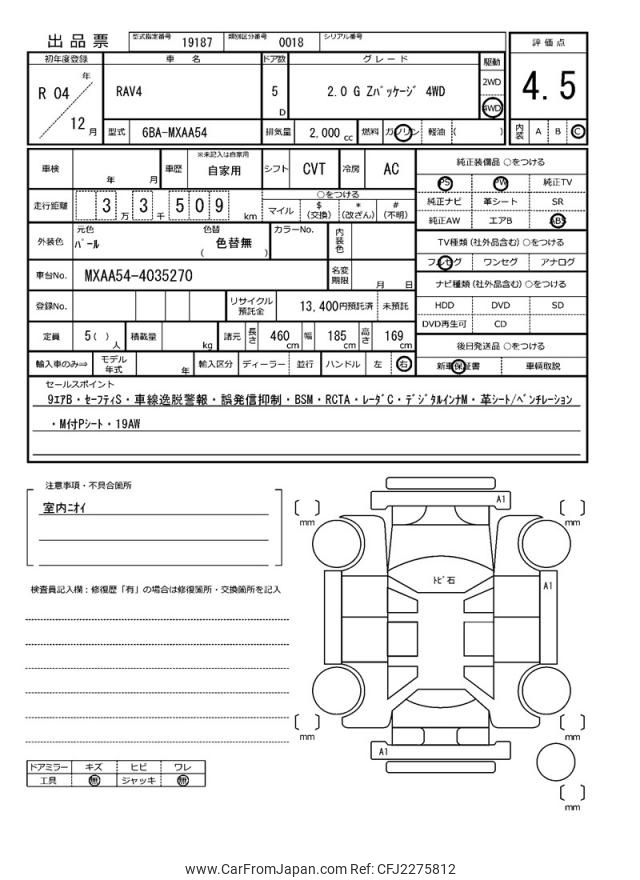 出品票 型式指定番号 19187 類別区分番号 0018 シリアル番号
評価点
4.5
内装 A B C
初年度登録 車名 ドア数 グレード 駆動
R 04 年 12 月 RAV4 5 D 2.0 G Zパッケージ 4WD 2WD 4WD
型式 6BA-MXAA54 排気量 2,000 cc 燃料 ガソリン 軽油 ( )
車検 年 月 車歴 ※未記入は自家用 自家用 シフト CVT 冷房 AC
走行距離 3 万 3 千 509 km ○をつける
マイル $ (交換) * (改ざん) # (不明)
外装色 元色 パール 色替 色替無 ( ) カラーNo. 内装色
車台No. MXAA54-4035270 名変期限 月 日
登録No. リサイクル預託金 13,400円預託済 未預託
定員 5( ) 人 積載量 kg 諸元 長さ 460 cm 幅 185 cm 高さ 169 cm
輸入車のみ⇒ モデル年式 年 輸入区分 ディーラー 並行 ハンドル 左 右
純正装備品 ○をつける
PS PW 純正TV
純正ナビ 革シート SR
純正AW エアB ABS
TV種類 (社外品含む) ○をつける
フルセグ ワンセグ アナログ
ナビ種類 (社外品含む) ○をつける
HDD DVD SD
DVD再生可 CD
後日発送品 ○をつける
新車保証書 車輌取説
セールスポイント
9エアB・セーフティS・車線逸脱警報・誤発信抑制・BSM・RCTA・レーダC・デジタルインナM・革シート/ベンチレーション
・M付Pシート・19AW
注意事項・不具合箇所
室内ニオイ
検査員記入欄：修復歴「有」の場合は修復箇所・交換箇所を記入
ドアミラー キズ ヒビ ワレ
工具 無 ジャッキ 無
A1
mm mm
トビ石
A1
mm mm
A1
mm
www.CarFromJapan.com Ref: CFJ2275812